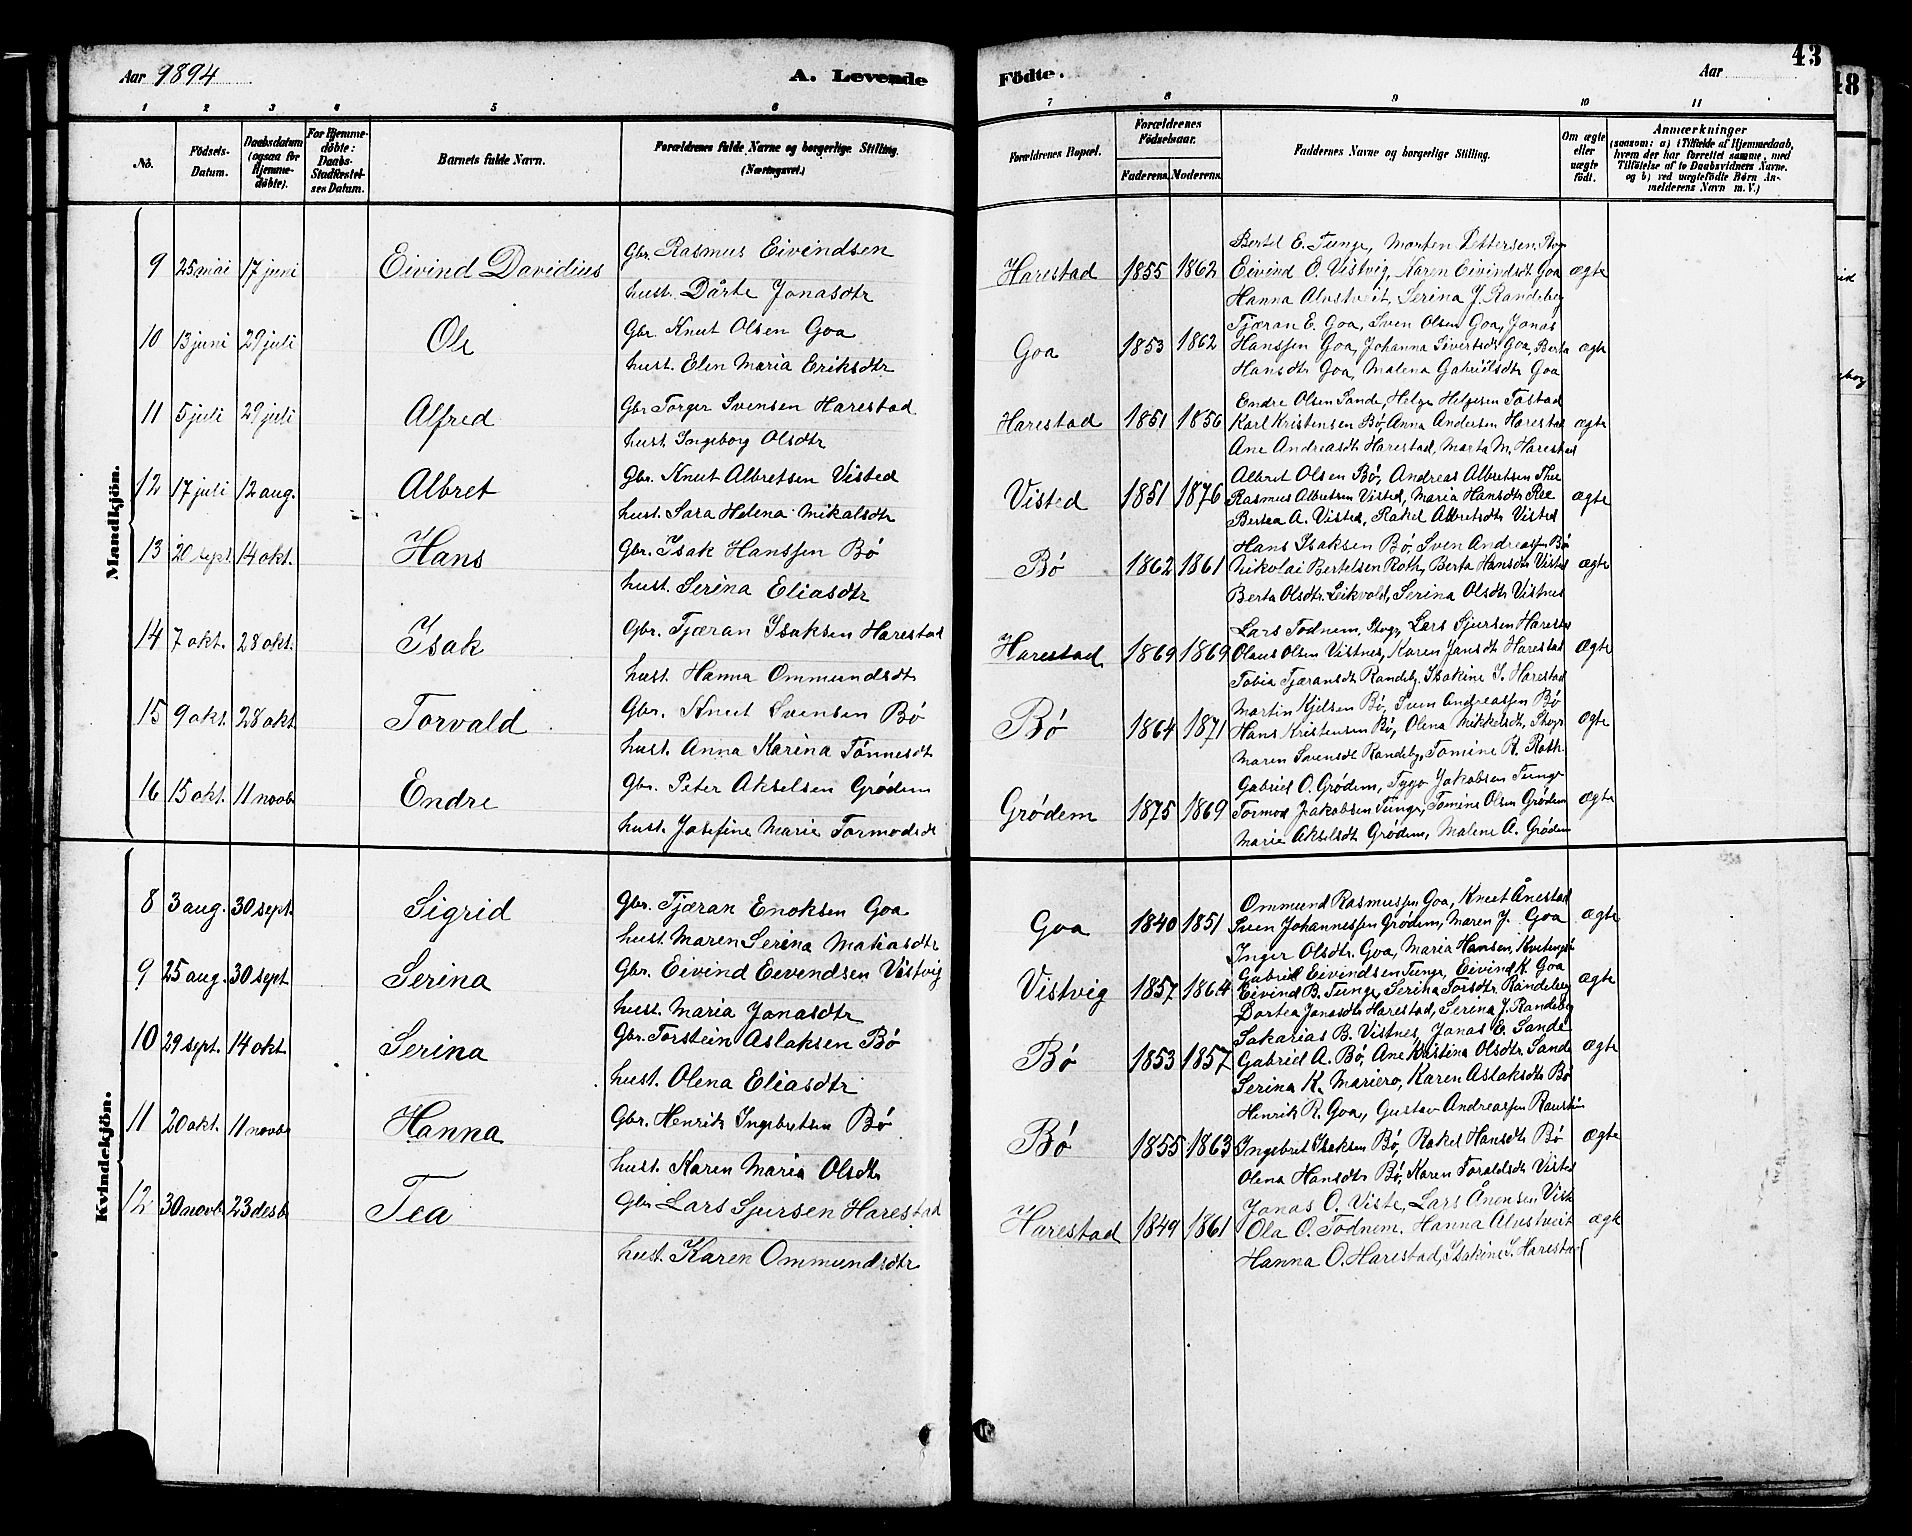 Aar 1894 A. Levende Födte. Aar 43
48
1 2 3 4 5 6 7 8 9 10 11
No. Födsels-Datum. Daabsdatum (ogsaa for Hjemmedöbte). For Hjemmedöbte: Daabs-Stadfæstelses Datum. Barnets fulde Navn. Forældrenes fulde Navne og borgerlige Stilling. (Næringsvei.) Forældrenes Bopæl. Forældrenes Födselsaar. Faderens. Moderens. Faddernes Navne og borgerlige Stilling. Om ægte eller uægte födt. Anmærkninger (saasom: a) i Tilfælde af Hjemmedaab, hvem der har forrettet samme, med Tilföielse af to Daabsvidners Navne. og b) ved uægtefödte Börn Anmelderens Navn m. V.)
Mandkjön.
9 25 mai 17 juni Eivind Davidius Gbr. Rasmus Eivindsen
hust. Dårte Jonasdtr
Harestad 1855 1862 Bertel E. Tunge, Morten Pettersen
Eivind O. Vistvig, Karen Eivindsdt Goa ægte
Hanna Alvstveit, Serina J. Randeberg
10 13 juni 29 juli Ole Gbr. Knut Olsen Goa
hust. Elen Maria Eriksdtr
Goa 1853 1862 Tjæran E. Goa, Sven Olsen Goa, Jonas
Hanssen Goa, Johanna Sivertsdt Goa, Berta ægte
Hansdtr Goa, Malena Gabrielsdt Goa
11 5 juli 29 juli Alfred Gbr Torger Svensen Harestad
hust. Ingeborg Olsdtr
Harestad 1851 1856 Endre Olsen Sande, Helge Helgesen Tastad
Karl Kristensen Bø, Anna Andersen Harestad ægte
Ane Andreasdt Harestad, Marta M. Harestad
12 17 juli 12 aug. Albret Gbr. Knut Albretsen Visted
hust. Sara Helena Mikalsdtr
Visted 1851 1876 Albret Olsen Bø, Andreas Albretsen
Rasmus Albretsen Visted, Maria Hansdtr ægte
Bertea A. Visted, Rakel Albretsdtr Visted
13 20 sept. 14 okt. Hans Gbr. Isak Hanssen Bø
hust. Serina Eliasdtr
Bø 1862 1861 Hans Isaksen Bø, Sven Andreassen Bø
Nikolai Bertelsen Roth, Berta Hansdtr Visted ægte
Berta Olsdtr. Leikvold, Serina Olsdtr Vistnes
14 7 okt. 28 okt. Isak Gbr. Tjæran Isaksen Harestad
hust. Hanna Ommundsdt
Harestad 1869 1869 Lars Todnem, Lars Sjursen Harestad
Olaus Olsen Vistnes, Karen Jansdt Harestad ægte
Tobia Tjæransdt Randeb., Isakine S. Harestad
15 9 okt. 28 okt. Torvald Gbr. Knut Svensen Bø
hust. Anna Karina Tønnesdt
Bø 1864 1871 Martin Kjelsen Bø, Sven Andreassen Bø
Hans Kristensen Bø, Olena Mikkelsdt, ægte
Maren Svensdt Randeby, Tomine R. Roth
16 15 okt. 11 novb. Endre Gbr. Peter Akselsen Grødem
hust. Josefine Marie Tormodsdt
Grødem 1875 1869 Gabriel O. Grødem, Jakobsen Tunge
Tormod Jakobsen Tunge, Tomine Olsen Grødem ægte
Marie Akselsdt Grødem, Malene A. Grødem
Kvindekjön.
8 3 aug. 30 sept. Sigrid Gbr. Tjæran Enoksen Goa
hust. Maren Serina Matiasdtr
Goa 1840 1851 Ommund Rasmussen Goa, Knut Ånestad
Sven Johannessen Grødem, Maren J. Goa ægte
Inger Olsdtr. Goa, Maria Hansen,
9 25 aug. 30 sept Serina Gbr. Eivind Eivendsen Vistvig
hust. Maria Jonasdtr
Vistvig 1857 1864 Gabriel Eivindsen Tunge, Eivind K. Goa
Eivind B. Tunge, Serina Torsdtr Randeberg ægte
Dortea Jonasdtr Harestad, Serina J. Randeberg
10 29 sept. 14 okt. Serina Gbr. Torstein Aslaksen Bø
hust. Olena Eliasdtr
Bø 1853 1857 Sakarias B. Vistnes, Jonas E. Sande
Gabriel A. Bø, Ane Kristina Olsdtr. Sande ægte
Serina K. Mariero, Karen Aslaksdtr Bø
11 20 okt. 11 novb. Hanna Gbr. Henrik Ingebretsen Bø
hust. Karen Maria Olsdtr
Bø 1855 1863 Henrik R. Goa, Gustav Andreassen
Ingebret Isaksen Bø, Rakel Hansdtr Bø ægte
Olena Hansdtr Bø, Karen Toraldsdt Visted
12 30 novb. 23 desb. Tea Gbr. Lars Sjursen Harestad
hust. Karen Ommundsdtr
Harestad 1849 1861 Jonas O. Viste, Lars Ånensen Viste
Ola O. Todnem. Hanna Alvstveit ægte
Hanna O. Harestad, Isakine S. Harestad